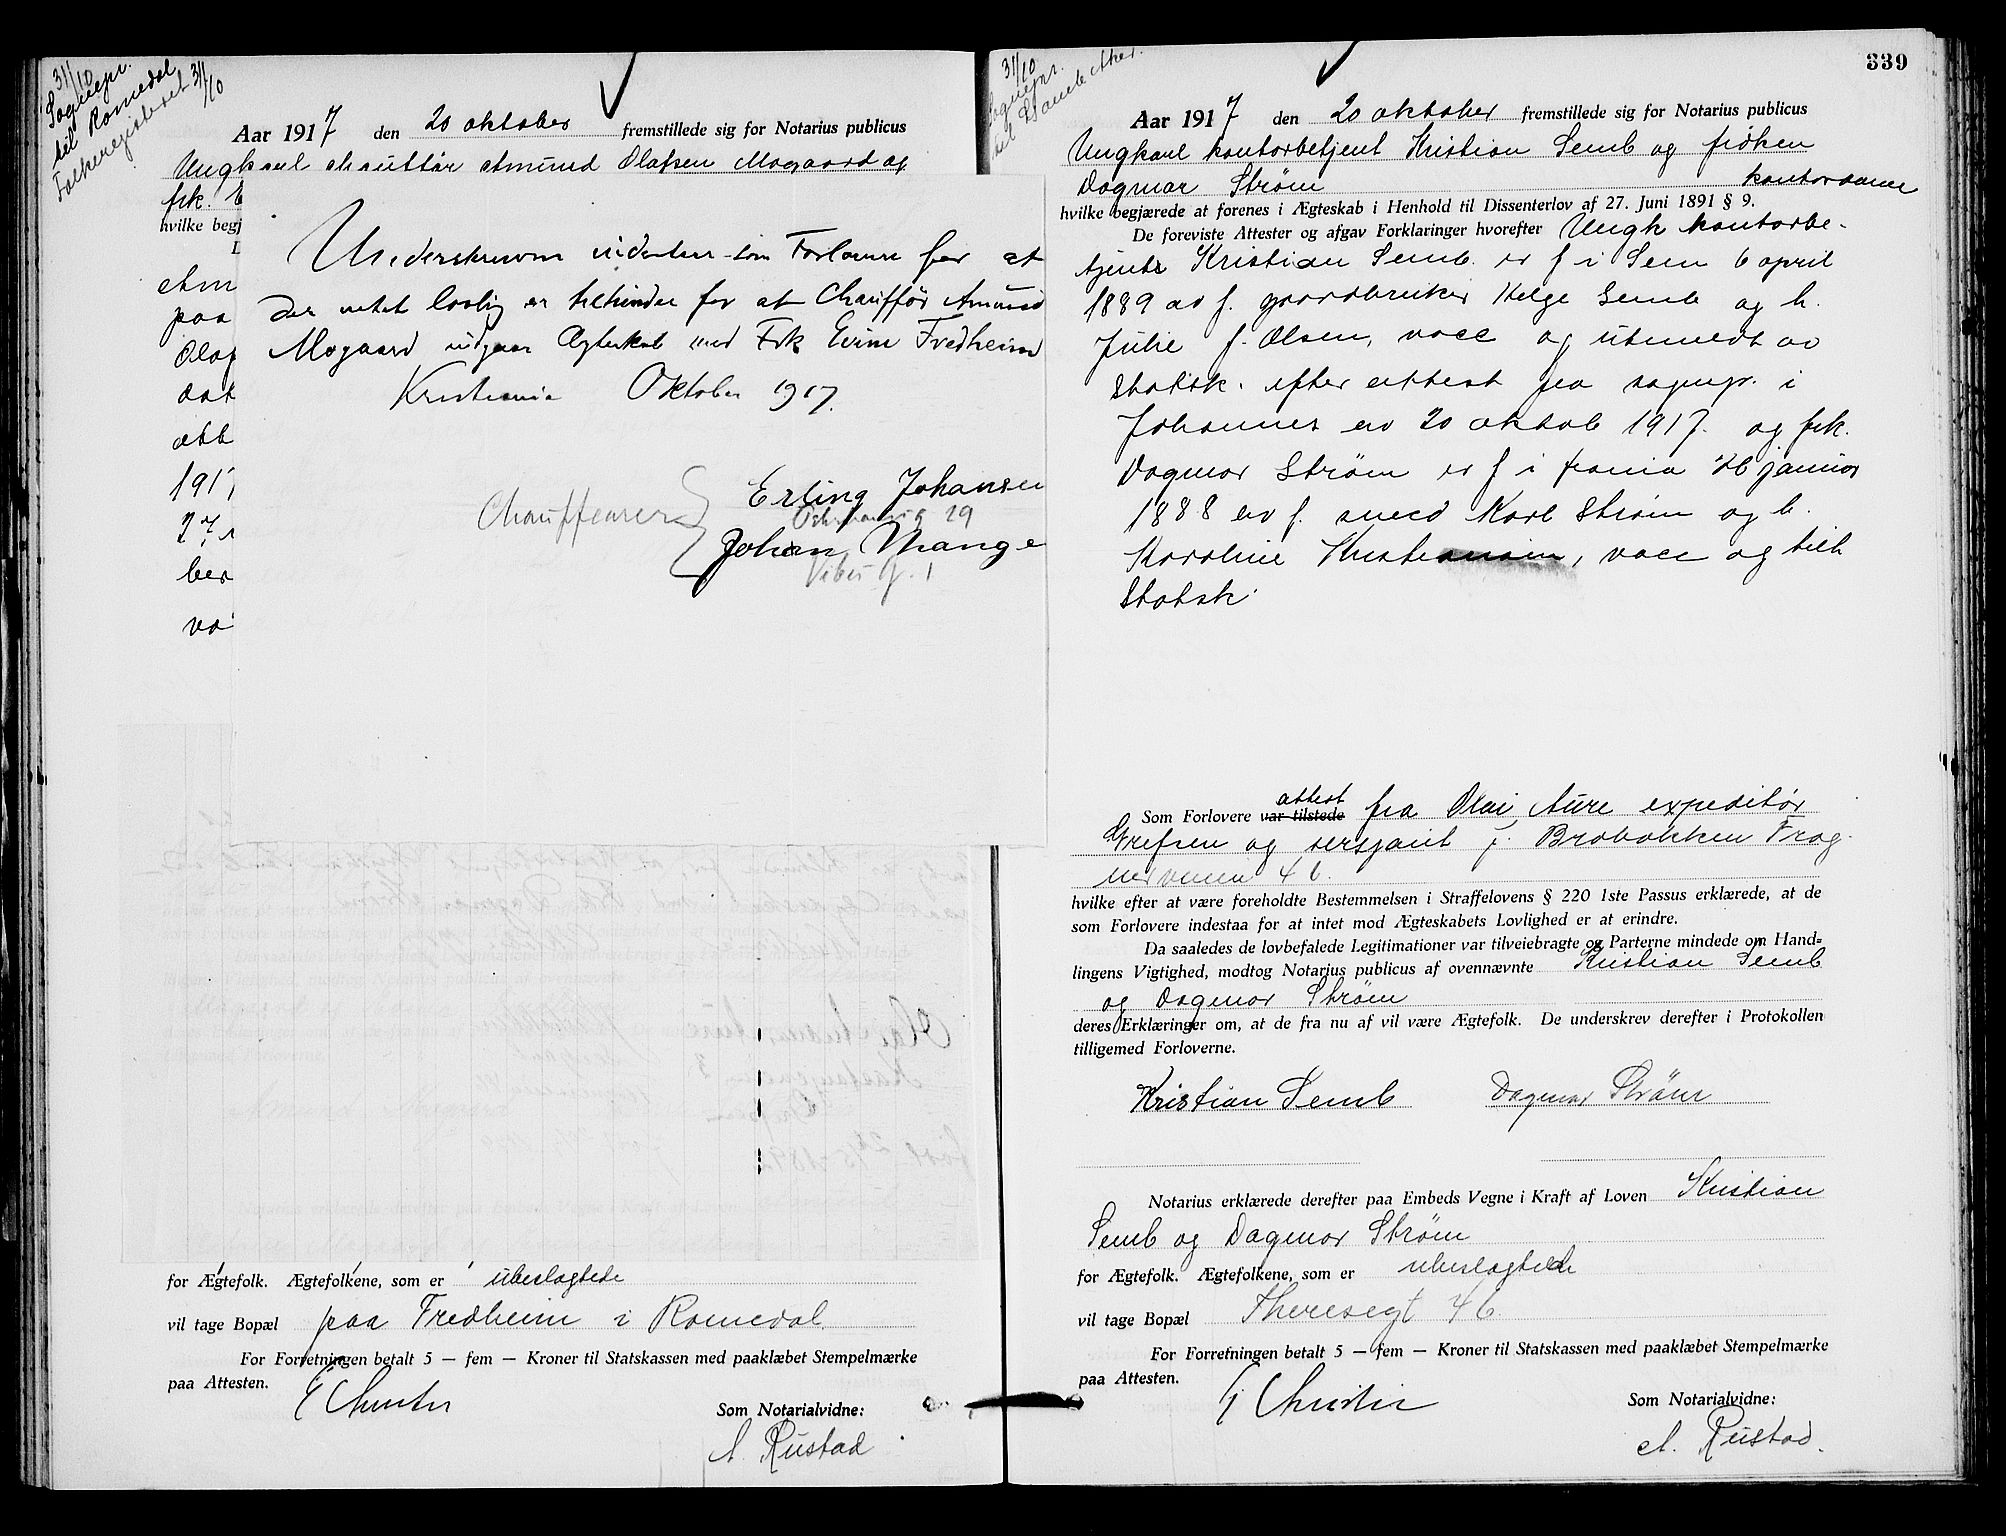 31/10
Sognepr.
til Romedal
Folkeregisteret 31/10
Aar 1917 den 20 oktober fremstillede sig for Notarius publicus
Ungkarl chauffør Amund Olafsen Mogaard og
frk. E
hvilke begj
D
Am
paa
Olaf
dat
att
191
27
ber
va
Underskrevne indestaar som Forlovere for at
der intet lovlig er tilhinder for at Chauffør Amund
Mogaard indgaar Ægteskab med Frk Evine Fredheim
Kristiania Oktober 1917.
Chauffeurer
Erling Johansen
29
Johan Mange
Vibes g. 1
for Ægtefolk. Ægtefolkene, som er ubeslagtede
vil tage Bopæl paa Fredheim i Romedal.
For Forretningen betalt 5 — fem — Kroner til Statskassen med paaklæbet Stempelmærke
paa Attesten.
E Christie
Som Notarialvidne:
A. Rustad
339
31/10
Sognepr.
til Gamle Aker.
Aar 1917 den 20 oktober fremstillede sig for Notarius publicus
Ungkarl kontorbetjent Kristian Semb og frøken
Dagmar Strøm kontordame
hvilke begjærede at forenes i Ægteskab i Henhold til Dissenterlov af 27. Juni 1891 § 9.
De foreviste Attester og afgav Forklaringer hvorefter Ungk kontorbe-
tjent Kristian Semb er f i Sem 6 april
1889 av f. gaardbruker Helge Semb og h.
Julie f. Olsen, vacc og utmeldt av
Statsk. efter attest fra sognepr. i
Johannes av 20 oktob 1917. og frk.
Dagmar Strøm er f i Krania 26 januar
1888 av f. smed Karl Strøm og h.
Karoline Kristiansen, vacc og tilh
Statsk.
Som Forlovere var tilstede attest fra Olai Aure expeditør
Grefsen og sersjant J. Brobakken Frog-
nerveien 46.
hvilke efter at være foreholdte Bestemmelsen i Straffelovens § 220 1ste Passus erklærede, at de
som Forlovere indestaa for at intet mod Ægteskabets Lovlighed er at erindre.
Da saaledes de lovbefalede Legitimationer var tilveiebragte og Parterne mindede om Hand-
lingens Vigtighed, modtog Notarius publicus af ovennævnte Kristian Semb
og Dagmar Strøm
deres Erklæringer om, at de fra nu af vil være Ægtefolk. De underskrev derefter i Protokollen
tilligemed Forloverne.
Kristian Semb Dagmar Strøm
Notarius erklærede derefter paa Embeds Vegne i Kraft af Loven Kristian
Semb og Dagmar Strøm
for Ægtefolk. Ægtefolkene, som er ubeslagtede
vil tage Bopæl Theresegt 46.
For Forretningen betalt 5 — fem — Kroner til Statskassen med paaklæbet Stempelmærke
paa Attesten.
E Christie
Som Notarialvidne:
A. Rustad.